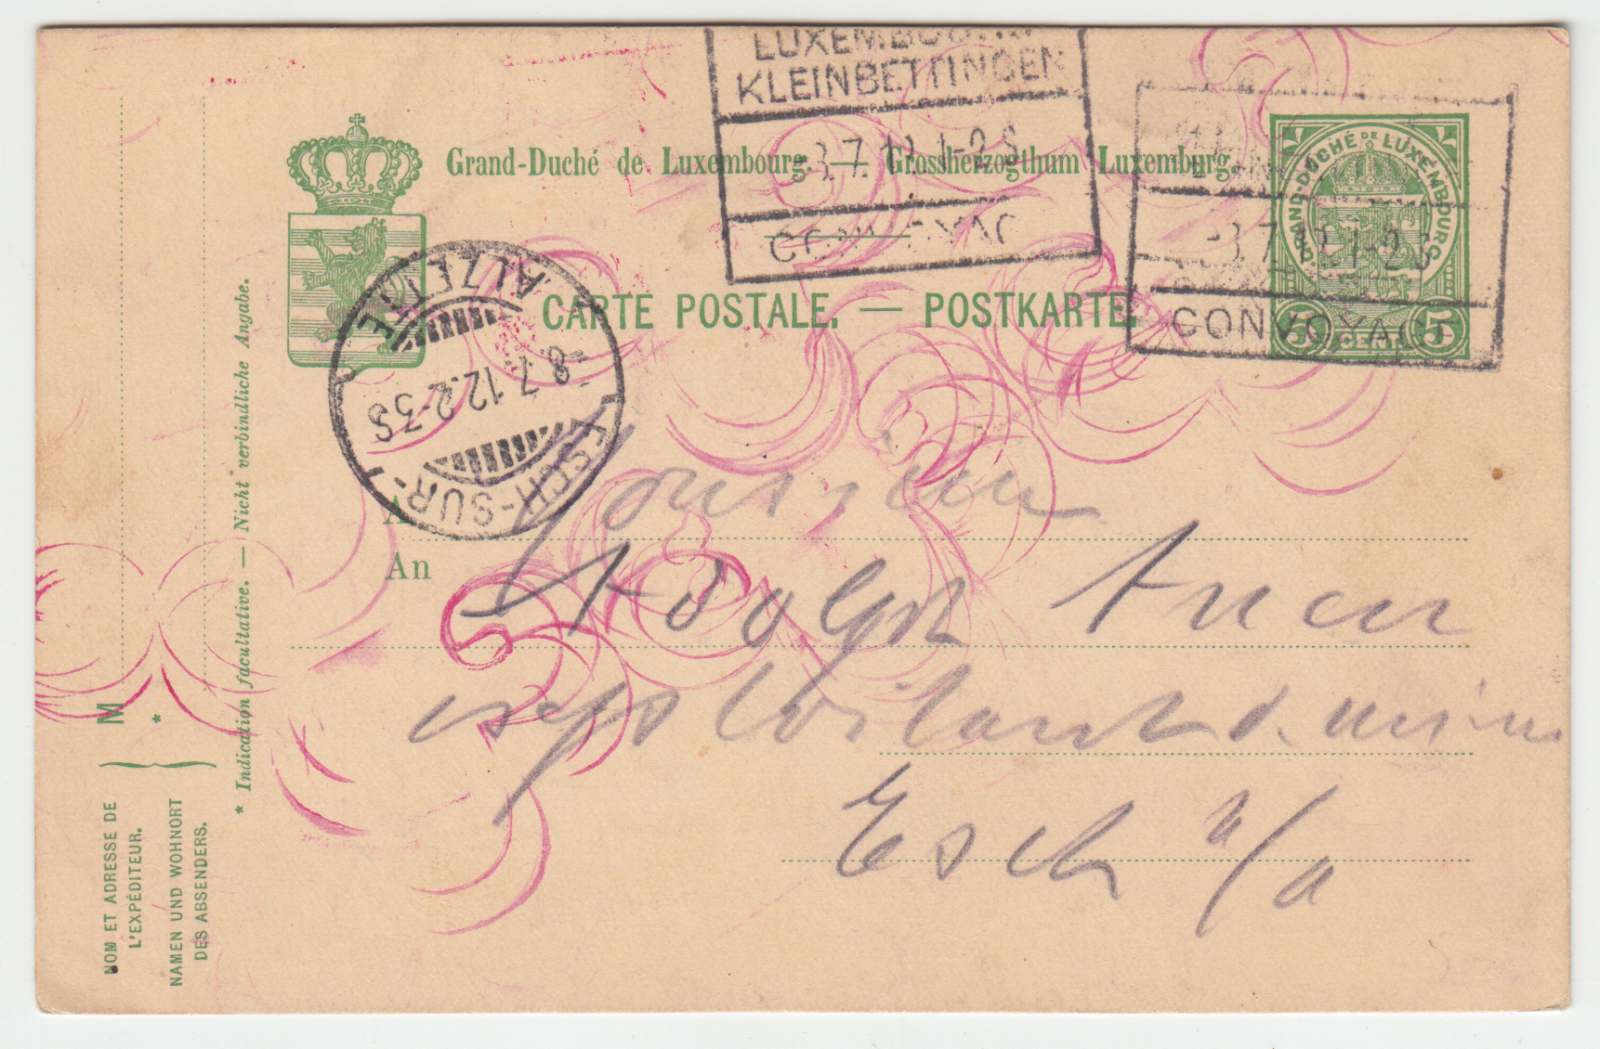 LUXEMBOURG
KLEINBETTINGEN
-3.7.12 1-2S
CONVOYAG
Grand-Duché de Luxembourg. — Grossherzogthum Luxemburg.
GRAND-DUCHÉ DE LUXEMBOURG
5 CENT. 5
-3.7.12 1-2S
CONVOYAG
CARTE POSTALE. — POSTKARTE.
ESCH-SUR-ALZETTE
-8.7.12.2-3S
A
An
Monsieur
Adolph
Esch s/a
M
*
NOM ET ADRESSE DE
L'EXPÉDITEUR.
NAMEN UND WOHNORT
DES ABSENDERS.
* Indication facultative. — Nicht verbindliche Angabe.